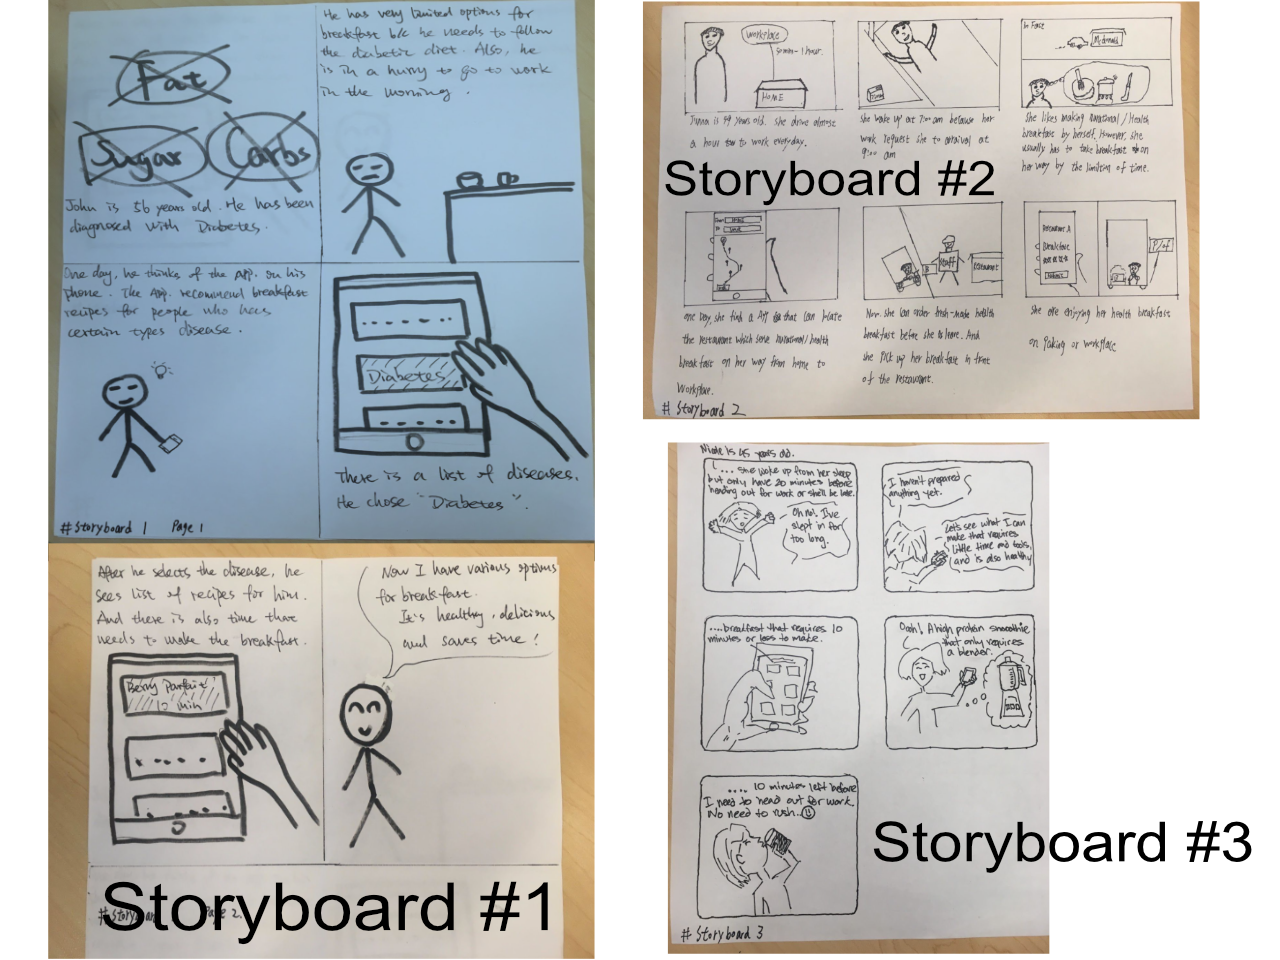 Fat
Sugar
Carbs
John is 56 years old. He has been
diagnosed with Diabetes.
He has very limited options for
breakfast b/c he needs to follow
the diabetic diet. Also, he
is in a hurry to go to work
in the morning.
One day, he thinks of the App. on his
phone. The App. recommend breakfast
recipes for people who has
certain types disease.
Diabetes
There is a list of diseases.
He chose "Diabetes".
# Storyboard 1 Page 1
After he selects the disease, he
sees list of recipes for him.
And there is also time that
needs to make the breakfast.
Berry Parfait
10 min
Now I have various options
for breakfast.
It's healthy, delicious
and saves time!
Storyboard #1
Workplace
HOME
is 49 years old. She drive almost
a hour to work everyday.
She wake up at 7:00 am because her
work request she to arrival at
9:00 am
In Face
McDonald
She likes making nutritional/Health
breakfast by herself. However, she
usually has to take breakfast on
her way by the limiting of time.
Storyboard #2
one Day, she find a App that can locate
the restaurant which serve nutritional/health
breakfast on her way from home to
Workplace.
Staff
restaurant
Now. she can order fresh-made health
breakfast before she leave. And
she pick up her breakfast in front
of the restaurant.
Restaurant A
breakfast
She are enjoying her health breakfast
on Paking or workplace
# Storyboard 2
Nicole is 45 years old.
(.... she woke up from her sleep
but only have 20 minutes before
heading out for work or she'll be late.
Oh no! I've
slept in for
too long.
I haven't prepared
anything yet.
Let's see what I can
make that requires
little time and tools,
and is also healthy
....breakfast that requires 10
minutes or less to make.
Oooh! A high protein smoothie
that only requires
a blender.
.... 10 minutes left before
I need to head out for work.
No need to rush..
Storyboard #3
# Storyboard 3